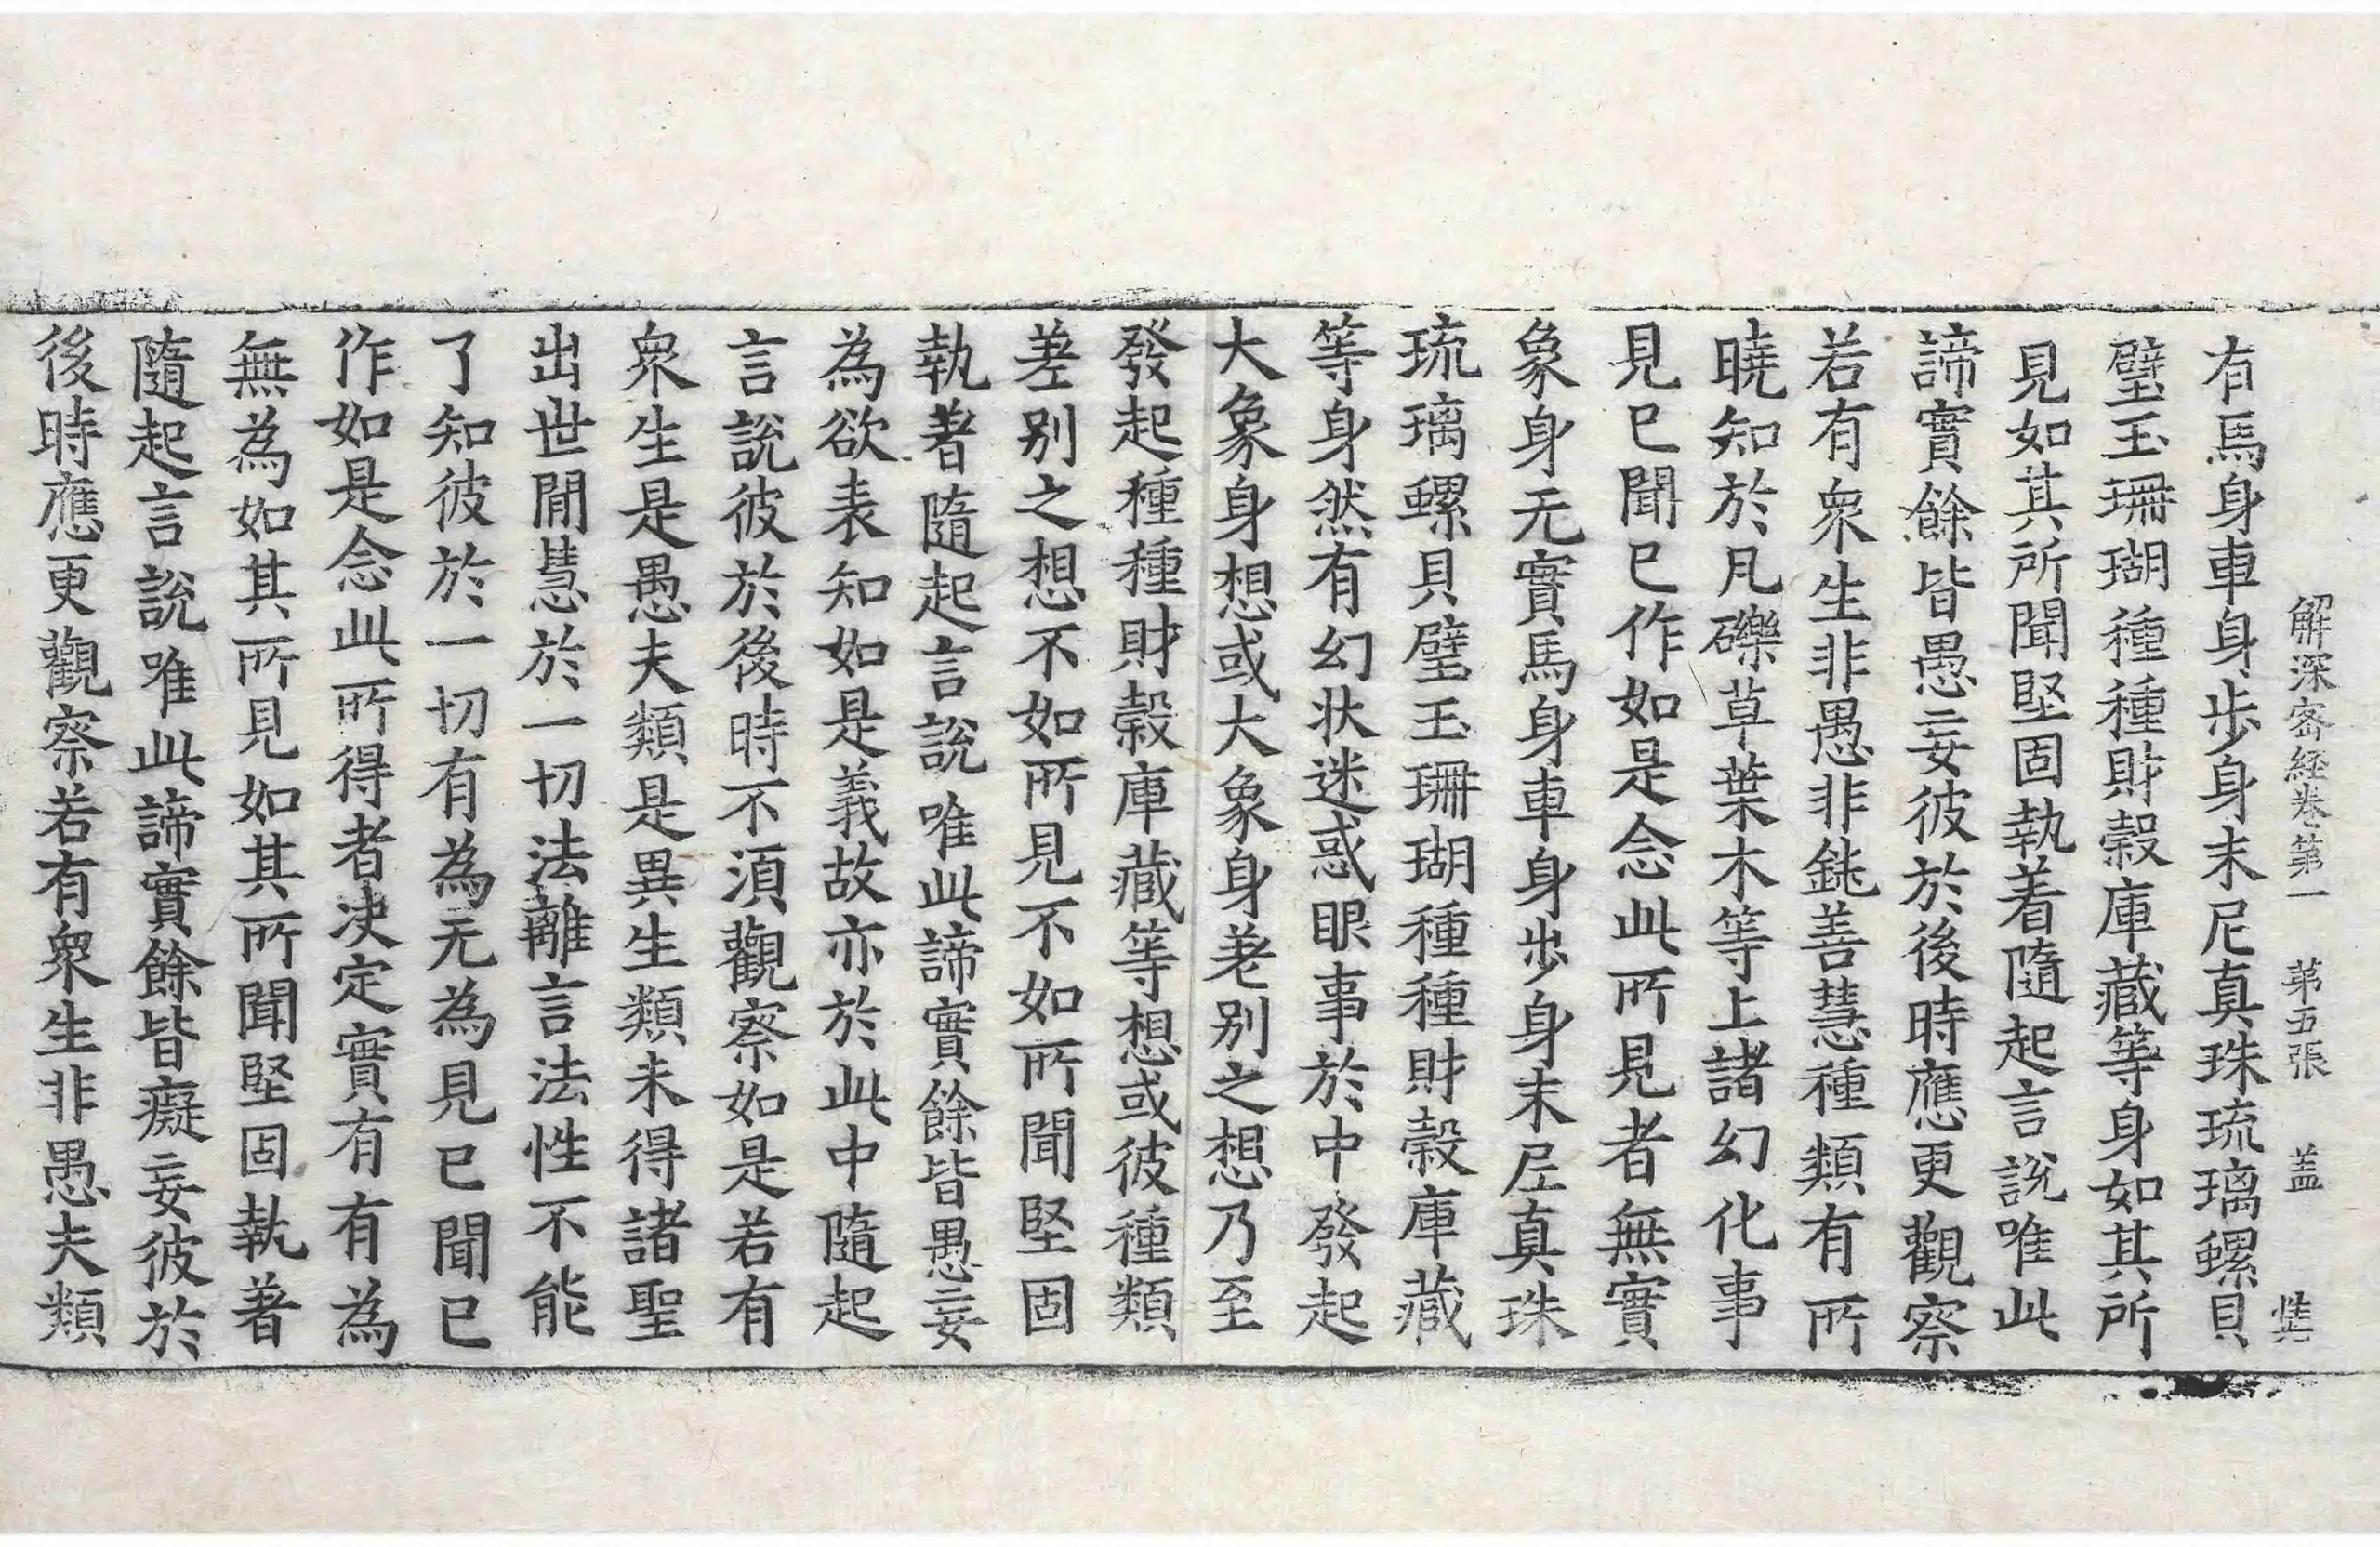 解深密經卷第一 第五張 盖
有馬身車身步身末尼真珠琉璃螺貝
璧玉珊瑚種種財穀庫藏等身如其所
見如其所聞堅固執着隨起言說唯此
諦實餘皆愚妄彼於後時應更觀察
若有衆生非愚非鈍善慧種類有所
曉知於凡礫草葉木等上諸幻化事
見已聞已作如是念此所見者無實
象身无實馬身車身步身末尼真珠
琉璃螺貝璧玉珊瑚種種財穀庫藏
等身然有幻状迷惑眼事於中發起
大象身想或大象身差别之想乃至
發起種種財穀庫藏等想或彼種類
差别之想不如所見不如所聞堅固
執著隨起言說唯此諦實餘皆愚妄
為欲表知如是義故亦於此中隨起
言說彼於後時不須觀察如是若有
衆生是愚夫類是異生類未得諸聖
出世間慧於一切法離言法性不能
了知彼於一切有為无為見已聞已
作如是念此所得者决定實有有為
無為如其所見如其所聞堅固執著
隨起言說唯此諦實餘皆癡妄彼於
後時應更觀察若有衆生非愚夫類